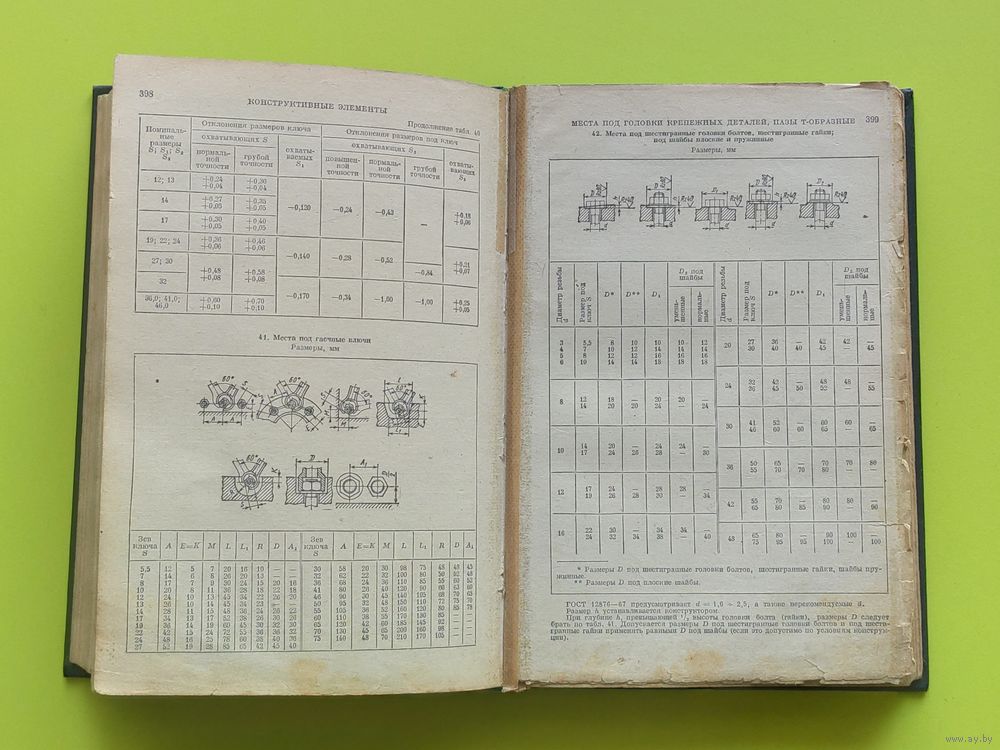 398
КОНСТРУКТИВНЫЕ ЭЛЕМЕНТЫ
Продолжение табл. 40
Номиналь-
ные
размеры
S; S₁; S₂
S₃
Отклонения размеров ключа
Отклонения размеров под ключ
охватывающих S
охваты-
ваемых
S₁
охватывающих S₂
охваты-
вающих
S₃
нормаль-
ной
точности
грубой
точности
повышен-
ной
точности
нормаль-
ной
точности
грубой
точности
12; 13
+0,24
+0,04
+0,30
+0,04
14
+0,27
+0,05
+0,35
+0,05
−0,120
−0,24
−0,43
—
+0,18
+0,06
17
+0,30
+0,05
+0,40
+0,05
19; 22; 24
+0,36
+0,06
+0,46
+0,06
−0,140
−0,28
−0,52
27; 30
+0,48
+0,08
+0,58
+0,08
−0,84
+0,21
+0,07
32
36,0; 41,0;
46,0
+0,60
+0,10
+0,70
+0,10
−0,170
−0,34
−1,00
−1,00
+0,25
+0,05
41. Места под гаечные ключи
Размеры, мм
60° 60° 60°
60° D A₁
Зев ключа S A E=K M L L₁ R D A₁ Зев ключа S A E=K M L L₁ R D A₁
5,5 12 5 7 20 16 10 — — 30 58 20 30 98 75 48 48 45
7 14 6 8 26 20 13 — — 32 62 22 32 100 80 50 52 48
8 17 7 9 30 24 15 20 16 36 68 24 36 110 85 55 60 52
10 20 8 11 36 28 18 22 18 41 80 26 40 120 90 60 63 60
12 24 10 13 45 34 22 26 20 46 90 30 45 140 105 68 70 65
13 26 10 14 45 34 23 — — 50 95 32 48 150 110 72 75 70
14 28 11 15 48 36 24 26 22 55 105 36 52 160 120 80 85 78
17 34 13 17 52 38 26 30 26 60 110 38 25 170 130 85 — —
19 36 14 19 60 45 30 32 30 65 120 42 60 185 145 92 — —
22 42 15 24 72 55 36 36 32 70 130 45 65 200 160 98 — —
24 48 16 25 78 60 38 40 36 75 140 48 70 210 170 105 — —
27 52 19 28 85 65 42 45 40
МЕСТА ПОД ГОЛОВКИ КРЕПЕЖНЫХ ДЕТАЛЕЙ, ПАЗЫ Т-ОБРАЗНЫЕ 399
42. Места под шестигранные головки болтов, шестигранные гайки;
под шайбы плоские и пружинные
Размеры, мм
Диаметр резьбы d Размер под ключ S D* D** D₁ D₂ под шайбы уменьшенные нормальные Диаметр резьбы d Размер под ключ S D* D** D₁ D₂ под шайбы уменьшенные нормальные
3 5,5 8 10 10 10 12
4 7 10 12 14 14 14
5 8 12 12 16 16 16
6 10 14 14 18 18 18
20 27 36 — 42 42 —
30 40 40 45 — 45
8 12 18 — 20 20 —
14 20 20 24 — 24
24 32 42 — 48 48 —
36 45 50 52 — 55
10 14 20 — 24 24 —
17 24 26 28 — 30
30 41 52 — 60 60 —
46 60 60 65 — 65
12 17 24 — 28 28 —
19 26 28 30 — 34
36 50 65 — 70 70 80
55 70 70 80 — —
16 22 30 — 34 34 —
24 32 34 38 — 40
42 55 70 — 80 80 —
65 80 85 90 — 90
48 65 80 — 90 90 —
75 95 95 100 — 100
* Размеры D под шестигранные головки болтов, шестигранные гайки, шайбы пру-
жинные.
** Размеры D под плоские шайбы.
ГОСТ 12876—67 предусматривает d = 1,0 ÷ 2,5, а также нерекомендуемые d.
Размер h устанавливается конструктором.
При глубине h, превышающей ¹/₃ высоты головки болта (гайки), размеры D следует
брать по табл. 41. Допускается размеры D под шестигранные головки болтов и под шести-
гранные гайки применять равными D под шайбы (если это допустимо по условиям конструк-
ции).
www.ay.by